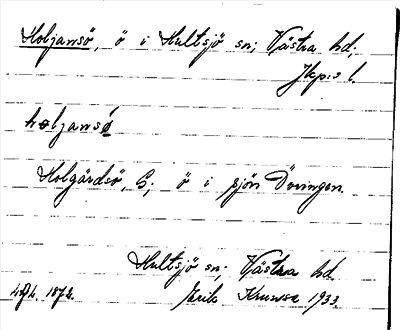 Holjansö, ö i Hultsjö sn; Västra hd;
Jkp:s l.
holjansö
Holgärdsö, G; ö i sjön Övingen
Hultsjö sn; Västra hd.
1872. Erik Kruuse 1933